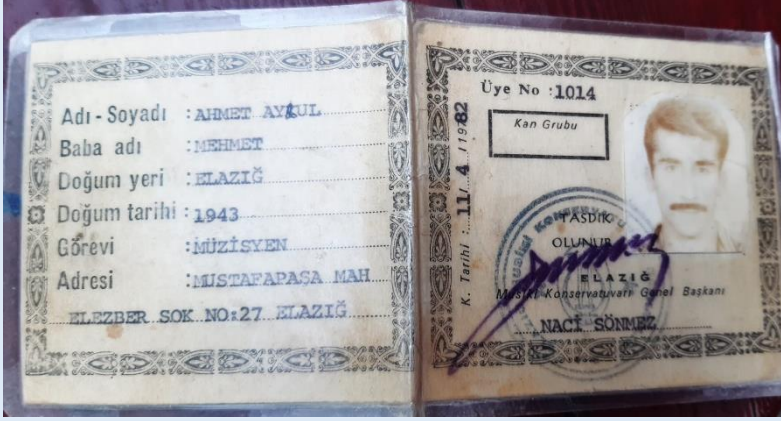 Adı - Soyadı : AHMET AYKUL
Baba adı : MEHMET
Doğum yeri : ELAZIĞ
Doğum tarihi : 1943
Görevi : MÜZİSYEN
Adresi : MUSTAFAPAŞA MAH
ELEZBER SOK NO:27 ELAZIĞ
Üye No : 1014
Kan Grubu
K. Tarihi : 11/ 4 / 1982
TASDİK
OLUNUR
ELAZIĞ
Musiki Konservatuvarı Genel Başkanı
NACİ SÖNMEZ